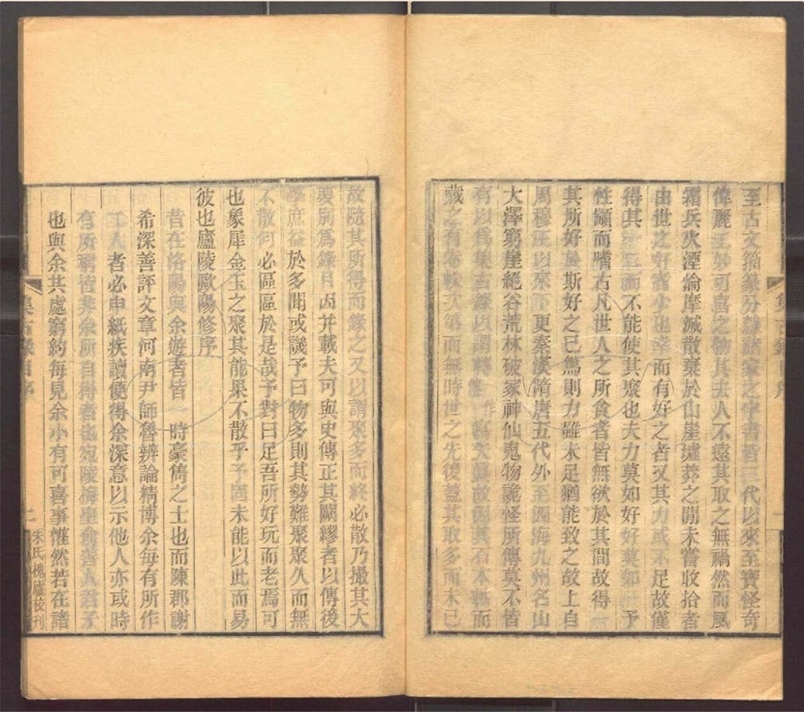 至古文籀篆分隸諸家之字書皆三代以來至寶怪奇
偉麗工妙可喜之物其去人不遠其取之無禍然而風
霜兵火湮淪摩滅散棄於山崖墟莽之閒未嘗收拾者
由世之好者少也幸而有好之者又其力或不足故僅
得其一二而不能使其聚也夫力莫如好好莫如一予
性顓而嗜古凡世人之所貪者皆無欲於其間故得一
其所好於斯好之已篤則力雖未足猶能致之故上自
周穆王以來下更秦漢隋唐五代外至四海九州名山
大澤窮崖絕谷荒林破冢神仙鬼物詭怪所傳莫不皆
有以為集古錄以謂轉寫失真故因其石本軸而
藏之有卷帙次第而無時世之先後蓋其取多而未已
集古錄目序
一
故隨其所得而錄之又以謂聚多而終必散乃撮其大
要別為錄目因并載夫可與史傳正其闕繆者以傳後
學庶益於多聞或譏予曰物多則其勢難聚聚久而無
不散何必區區於是哉予對曰足吾所好玩而老焉可
也象犀金玉之聚其能果不散乎予固未能以此而易
彼也廬陵歐陽修序
昔在洛陽與余遊者皆一時豪雋之士也而陳郡謝
希深善評文章河南尹師魯辨論精博余每有所作
二人者必申紙疾讀便得余深意以示他人亦或時
有所稱皆非余所自得者也宛陵梅聖俞善人君子
也與余共處窮約每見余小有可喜事懽然若在諸
集古錄目序
二
朱氏槐廬校刊